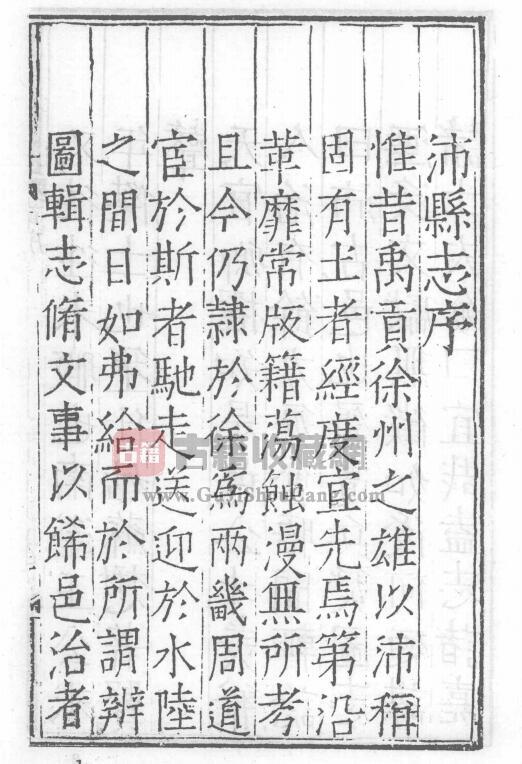 沛縣志序
惟昔禹貢徐州之雄以沛稱
固有土者經度宜先焉第沿
革靡常版籍蕩蝕漫無所考
且今仍隷於徐為兩畿周道
宦於斯者馳走送迎於水陸
之間日如弗給而於所謂辨
圖輯志脩文事以餙邑治者
古籍
古籍收藏網
www.GuJiShouCang.com